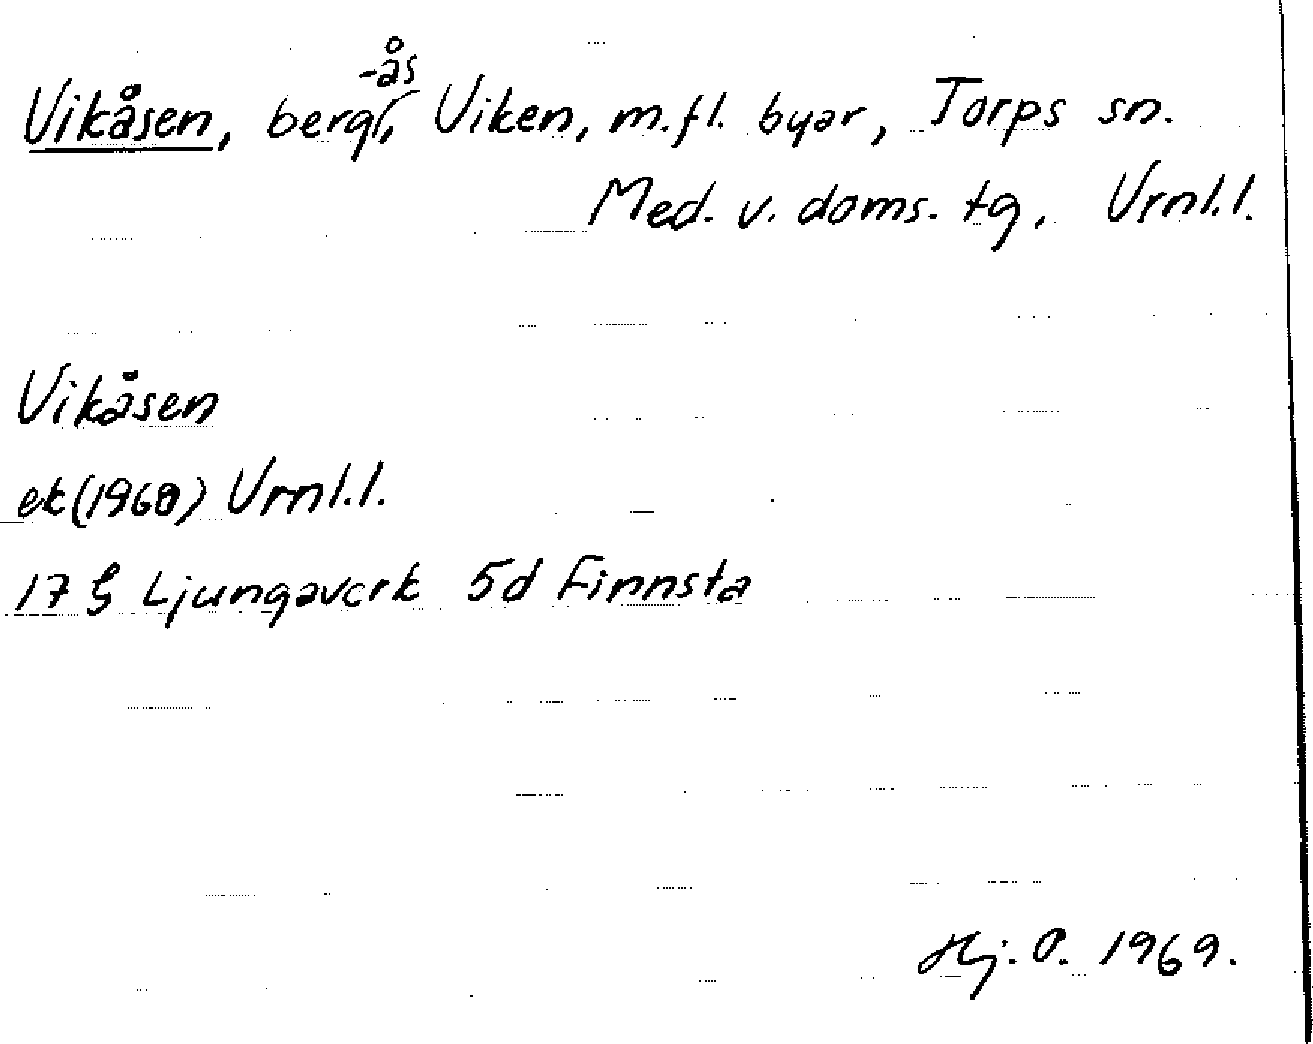 Vikåsen, berg-ås, Viken, m.fl. byar, Torps sn.
Med. v. doms. tg, Vrnl.l.
Vikåsen
ek (1960) Vrnl.l.
17 G Ljungaverk 5d Finnsta
Hj. O. 1969.